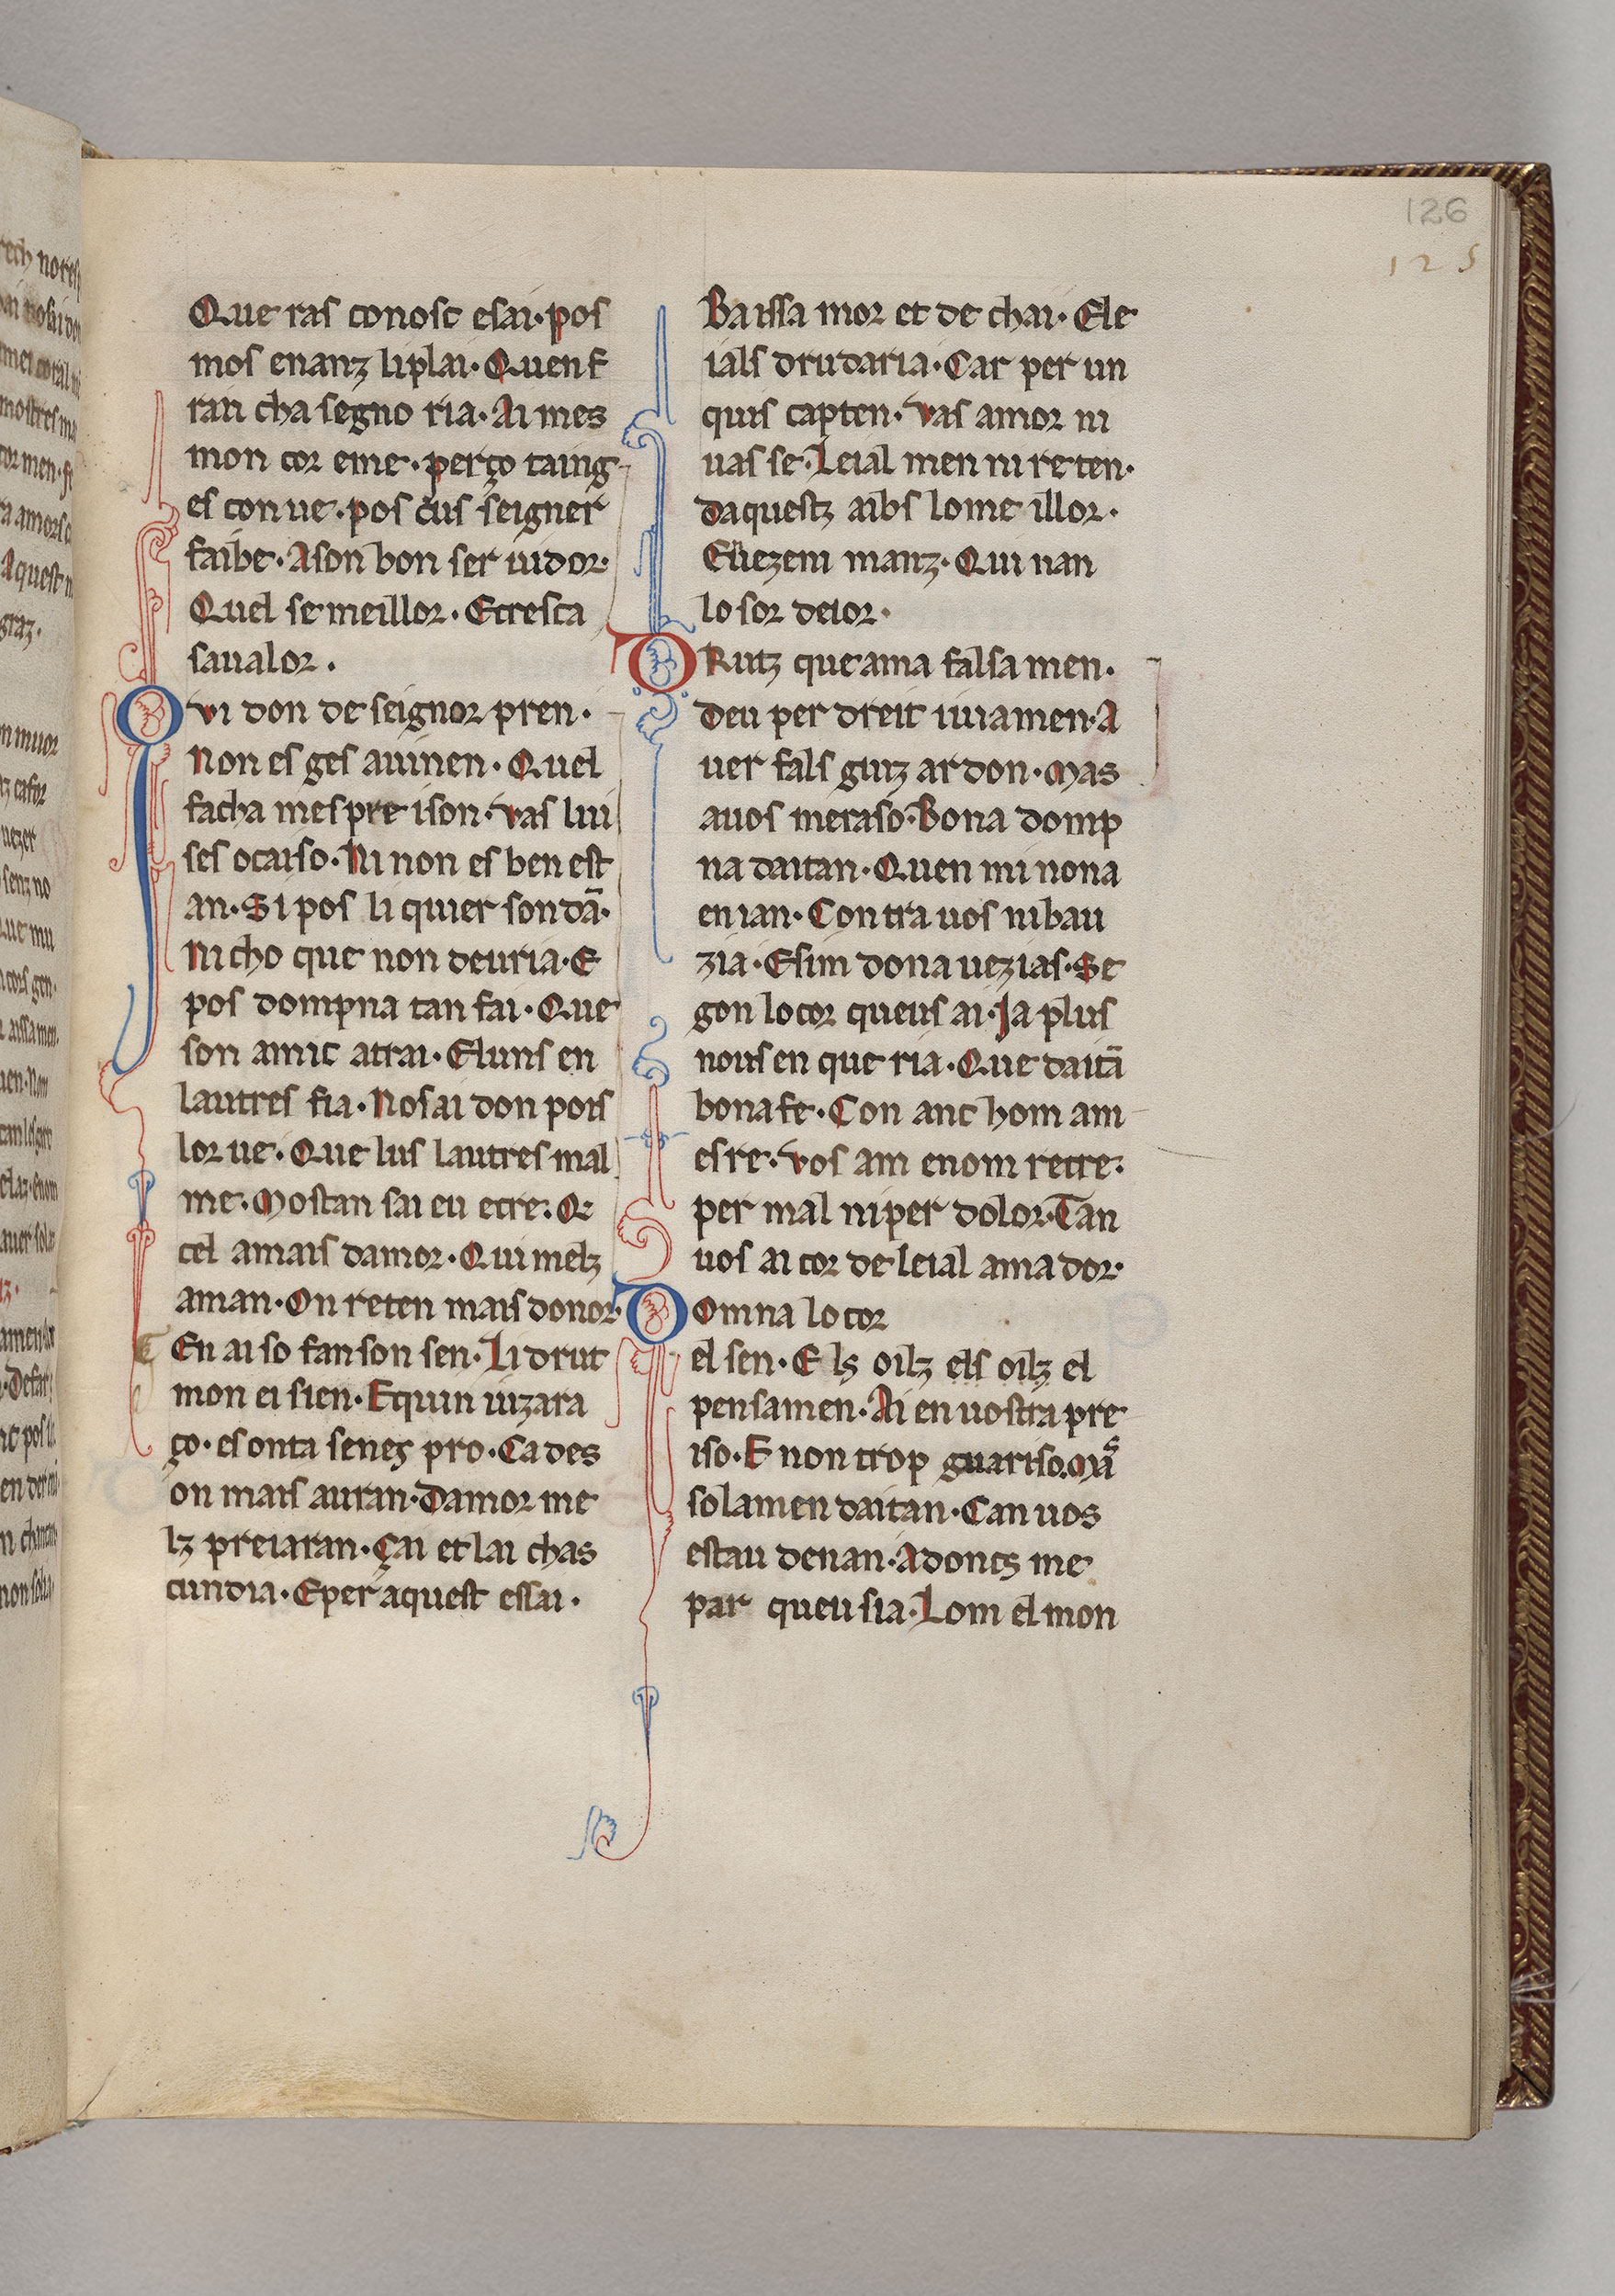 126
125
Que ras conosc esai·pos
mos enanz liplai·Quenf
ran cha segno ria·Ai mes
mon cor eme·perço taing
es con ue·pos cus seigner
faibe·Ason bon ser uidor·
Quel se meillor·Ecresca
saualor·
Qvi don de seignor pren·
Non es ges auinen·Quel
facha mespre ison·vas lui
ses ocaiso·Ni non es ben est
an·Si pos li quier son dā·
Ni cho que non deuria·E
pos dompna tan fai·Que
son amic atrai·Eluns en
lautres fia·Nosai don pois
lor ue·Que lus lautres mal
me·Mostan sai eu ecre·Q
cel amais damor·Qui melz
aman·On reten mais donor·
En aiso fan son sen·Li drut
mon ei sien·Equin uizara
ço·es onta senes pro·Cades
on mais auran·Damor me
lz preiaran·Çai et lai chas
cundia·Eper aquest essai·
Baissa mor et de chai·Ele
ials drudaria·Car per un
quis capten·vas amor ni
uas se·Leial men ni re ten·
daquestz aibs lome illor·
Euezem manz·Qui nan
lo sor deior·
DRutz que ama falsa men·
Deu per dreit iuiamen·A
uer fals guiz ardon·Mas
auos meraso·Bona domp
na daitan·Quen mi nona
enian·Contra uos ni bau
zia·Esim dona uezias·Se
gon locor queus ai·Ja plus
nous en que ria·Que daitā
bonafe·Con anc hom am
es re·vos am enom recre·
per mal ni per dolor·Tan
uos ai cor de leial amador·
DOmna lo cor
el sen·E ls oilz els oilz el
pensamen·Ai en uostra pre
iso·E non trop guariso·Mās
solamen daitan·Can uos
estau denan·Adoncs me
par queu sia·Lom el mon